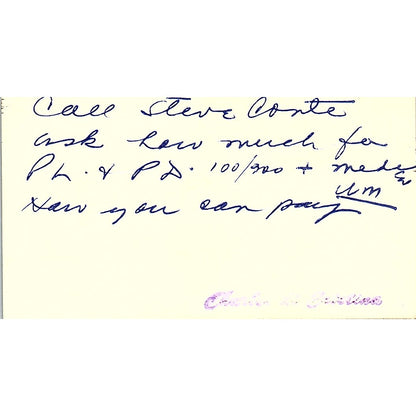 Call Steve Conte
ask how much for
PL. & PD. 100/300 + medical
UM
How you can pay